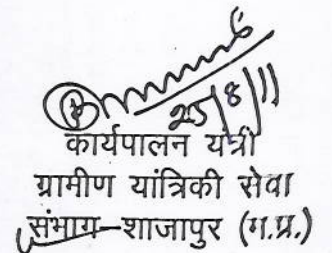 25/8/11
कार्यपालन यंत्री
ग्रामीण यांत्रिकी सेवा
संभाग-शाजापुर (म.प्र.)